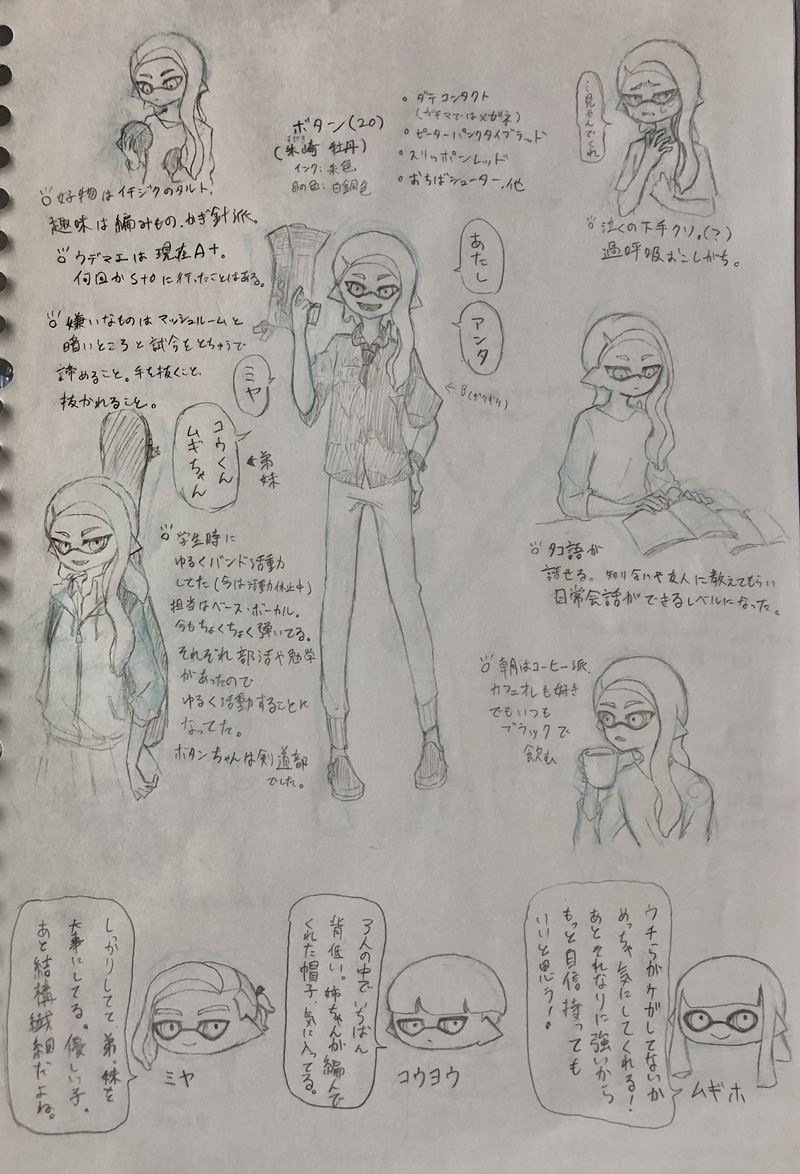 ボタン(20)
(朱崎 牡丹)
インク: 朱色
目の色: 白銅色
。ダテコンタクト
(ガチマではメガネ)
。ピーターパンクタイプブラッド
。スリッポンレッド
。おちばシューター、他
…見ないでくれ
好物はイチジクのタルト、
趣味は編みもの、かぎ針派。
ウデマエは現在A+。
何回かS+0に行ったことはある。
嫌いなものはマッシュルームと
暗いところと試合をとちゅうで
諦めること。手を抜くこと、
抜かれること。
泣くの下手クソ。(?)
過呼吸おこしがち。
あたし
アンタ
ミヤ
コウくん
ムギちゃん
弟妹
←B(ギリギリ)
学生時に
ゆるくバンド活動
してた(今は活動休止中)
担当はベース・ボーカル。
今もちょくちょく弾いてる。
それぞれ部活や勉学
があったので
ゆるく活動することに
なってた。
ボタンちゃんは剣道部
でした。
タコ語が
話せる。知り合いや友人に教えてもらい
日常会話ができるレベルになった。
朝はコーヒー派、
カフェオレも好き
でもいつも
ブラックで
飲む
しっかりしてて、弟・妹を
大事にしてる。優しい子。
あと結構繊細だよね。
ミヤ
3人の中でいちばん
背低い。姉ちゃんが編んで
くれた帽子、気に入ってる。
コウヨウ
ウチらがケガしてないか
めっちゃ気にしてくれる!
あとそれなりに強いから
もっと自信持っても
いいと思う!
ムギホ